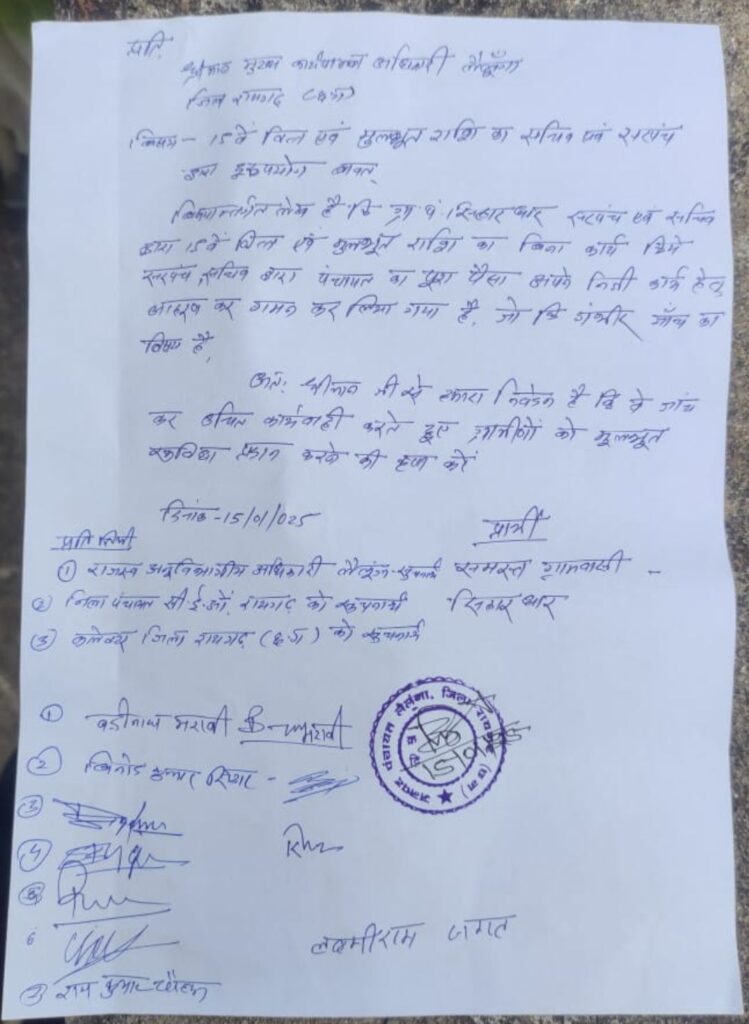 प्रति,
श्रीमान मुख्य कार्यपालन अधिकारी लैलूँगा
जिला रायगढ़ (छ.ग)
विषय - 15 वें वित्त एवं मुलभूत राशि का सचिव एवं सरपंच
द्वारा दुरूपयोग बाबत्
विषयान्तर्गत लेख है कि ग्रा पं. सरपंच एवं सचिव
द्वारा 15 वें वित्त एवं मुलभूत राशि का बिना कार्य किये
सरपंच, सचिव द्वारा पंचायत का पूरा पैसा अपने निजी कार्य हेतु
आहरण कर गमन कर लिया गया है, जो कि गंभीर जाँच का
विषय है,
अतः श्रीमान जी से हमारा निवेदन है कि वे जांच
कर उचित कार्यवाही करते हुए ग्रामीणों को मूलभूत
सुविधा प्रदान करने की कृपा करें
दिनांक - 15/01/025
प्रार्थी
प्रतिलिपी
① राजस्व अनुविभागीय अधिकारी लैलूंगा - सूचनार्थ
समस्त ग्रामवासी -
② जिला पंचायत सी.ई.ओ. रायगढ़ को सूचनार्थ
③ कलेक्टर जिला रायगढ़ (छ.ग) को सूचनार्थ
① बद्रीनाथ मरावी
जनपद पंचायत लैलूंगा, जिला रायगढ़ (छ.ग.)
15/01/25
② विनोद कुमार
③
④
⑤
6
लक्ष्मीराम जगत
⑦ राज कुमार